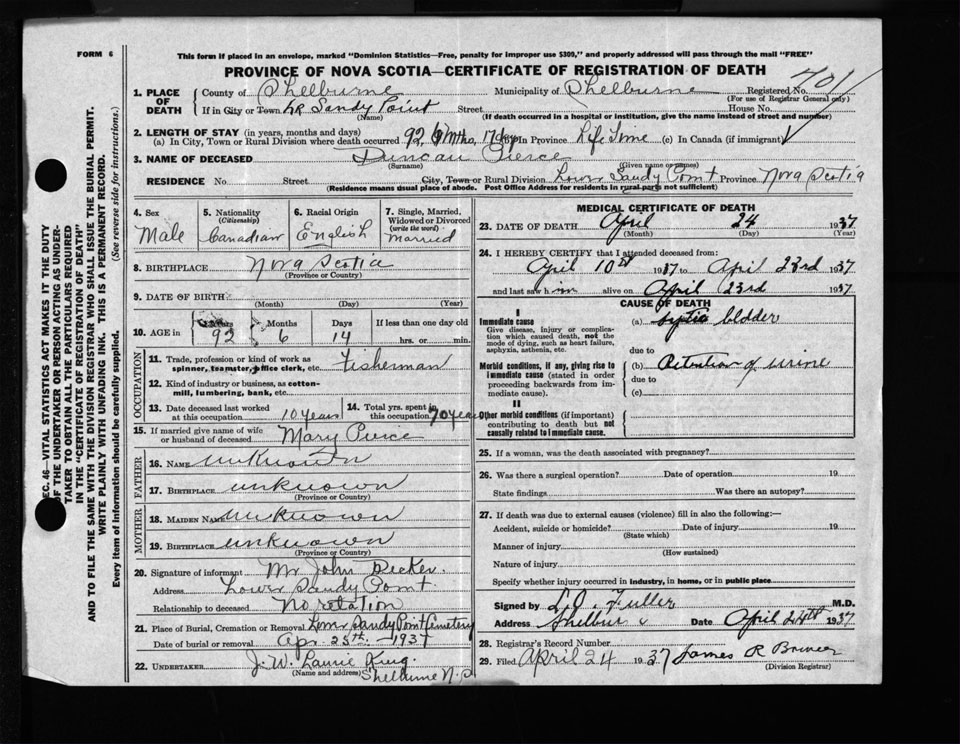 FORM 6
This form if placed in an envelope, marked "Dominion Statistics—Free, penalty for improper use $300," and properly addressed will pass through the mail "FREE"
PROVINCE OF NOVA SCOTIA—CERTIFICATE OF REGISTRATION OF DEATH
SEC. 46—VITAL STATISTICS ACT MAKES IT THE DUTY
OF THE UNDERTAKER OR PERSON ACTING AS UNDER-
TAKER TO OBTAIN ALL THE PARTICULARS REQUIRED
IN THE "CERTIFICATE OF REGISTRATION OF DEATH"
AND TO FILE THE SAME WITH THE DIVISION REGISTRAR WHO SHALL ISSUE THE BURIAL PERMIT.
WRITE PLAINLY WITH UNFADING INK. THIS IS A PERMANENT RECORD.
Every item of information should be carefully supplied. (See reverse side for instructions.)
1. PLACE OF DEATH
County of Shelburne Municipality of Shelburne Registered No. 701
(For use of Registrar General only)
If in City or Town Lr Sandy Point Street House No.
(Name) (If death occurred in a hospital or institution, give the name instead of street and number)
2. LENGTH OF STAY (in years, months and days)
(a) In City, Town or Rural Division where death occurred 92, 6 Mths, (b) in Province Life Time (c) In Canada (if immigrant)
3. NAME OF DECEASED Duncan Pierce
(Surname) (Given name or names)
RESIDENCE No. Street City, Town or Rural Division Lower Sandy Point Province Nova Scotia
(Residence means usual place of abode. Post Office Address for residents in rural parts not sufficient)
4. Sex Male
5. Nationality (Citizenship) Canadian
6. Racial Origin English
7. Single, Married, Widowed or Divorced (write the word) Married
8. BIRTHPLACE Nova Scotia
(Province or Country)
9. DATE OF BIRTH
(Month) (Day) (Year)
10. AGE in Years 92 Months 6 Days 14 If less than one day old hrs. or min.
OCCUPATION
11. Trade, profession or kind of work as spinner, teamster, office clerk, etc. Fisherman
12. Kind of industry or business, as cotton-mill, lumbering, bank, etc.
13. Date deceased last worked at this occupation 10 years
14. Total yrs. spent in this occupation 70 years
15. If married give name of wife or husband of deceased Mary Pierce
FATHER
16. NAME unknown
17. BIRTHPLACE unknown
(Province or Country)
MOTHER
18. MAIDEN NAME unknown
19. BIRTHPLACE unknown
(Province or Country)
20. Signature of informant Mr John Decker.
Address Lower Sandy Point
Relationship to deceased No relation
21. Place of Burial, Cremation or Removal Lower Sandy Point Cemetery
Date of burial or removal Apr. 25th. — 1937
22. UNDERTAKER J. W. Laurie King.
(Name and address) Shelburne N.S
MEDICAL CERTIFICATE OF DEATH
23. DATE OF DEATH April 24 1937
(Month) (Day) (Year)
24. I HEREBY CERTIFY that I attended deceased from:
April 10th 1937 to April 23rd 1937
and last saw him alive on April 23rd 1937
CAUSE OF DEATH
I
Immediate cause
Give disease, injury or complication which caused death, not the mode of dying, such as heart failure, asphyxia, asthenia, etc.
(a) septic bladder
due to
Morbid conditions, if any, giving rise to immediate cause (stated in order proceeding backwards from immediate cause).
(b) Retention of urine
due to
(c)
II
Other morbid conditions (if important) contributing to death but not causally related to immediate cause.
25. If a woman, was the death associated with pregnancy?
26. Was there a surgical operation? Date of operation 19
State findings Was there an autopsy?
27. If death was due to external causes (violence) fill in also the following:—
Accident, suicide or homicide? Date of injury 19
(State which)
Manner of injury
(How sustained)
Nature of injury
Specify whether injury occurred in industry, in home, or in public place
Signed by L.O. Fuller M.D.
Address Shelburne Date April 24th 1937
28. Registrar's Record Number
29. Filed April 24 1937 James R Bower
(Division Registrar)